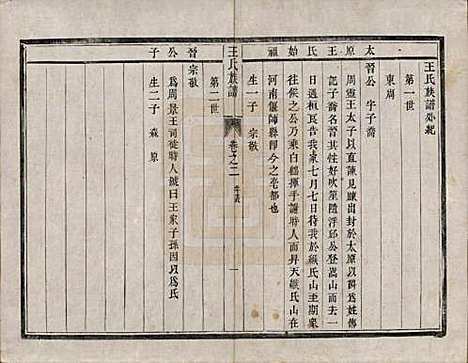 王氏族譜外紀
東周
第一世
太原王氏始祖
晉公 字子喬
周靈王太子以直諫見疎出封於太原姓傳
記子喬名晉其性好吹笙隨浮邱公登嵩山而去一
日遇桓良告我家七月七日待我於緱氏山至期衆
往候之公乃乘白鶴揮手謝時人而昇天緱氏山在
河南偃師縣即今之亳都也
生一子 宗敬
王氏族譜
卷之二
一
第二世
晉公子
宗敬
爲周景王司徒時人號曰王家子孫因以爲氏
生二子 森 原